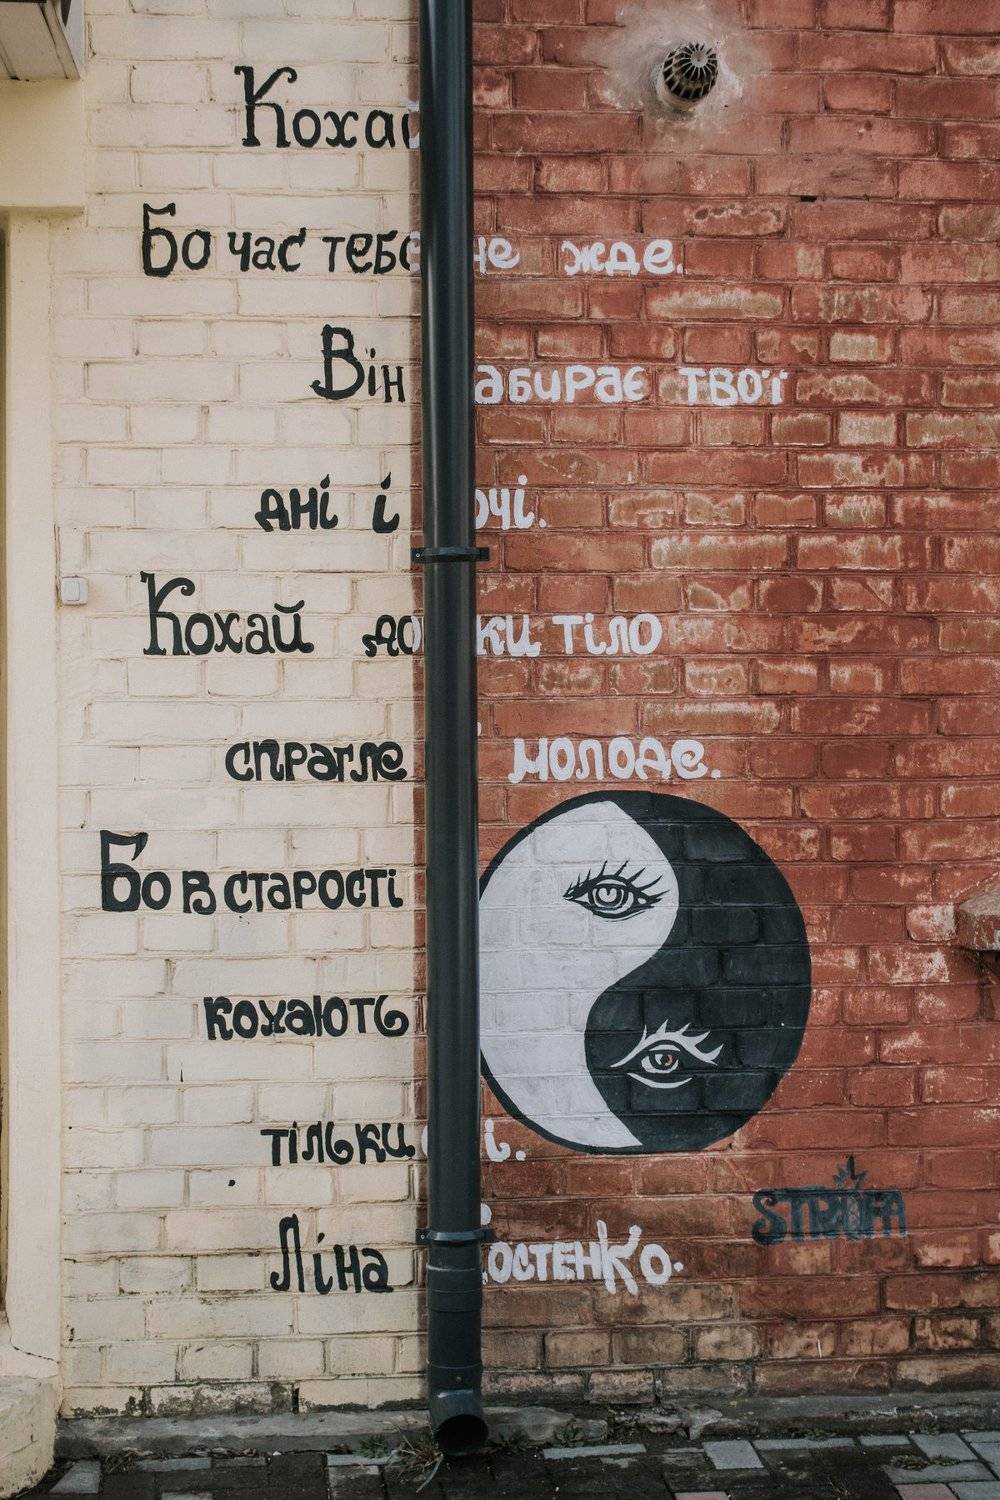 Кохай
Бо час тебе не жде.
Він забирає твої
дні і ночі.
Кохай допоки тіло
спрагле і молоде.
Бо в старості
кохають
тільки очі.
Ліна Костенко.
STROFA